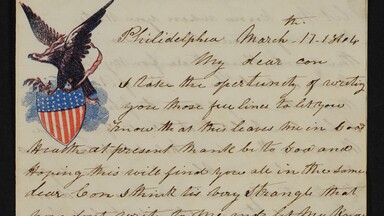 th.
Philidelphia March - 17 - 1864
My dear con
I take the opertunity of writing
you those few lines to let you
know that this leaves me in Good
Health at present thank be to God and
Hoping this will find you all in the same
dear Con I think tis very Strange that
you dont write to Me and let Me Know